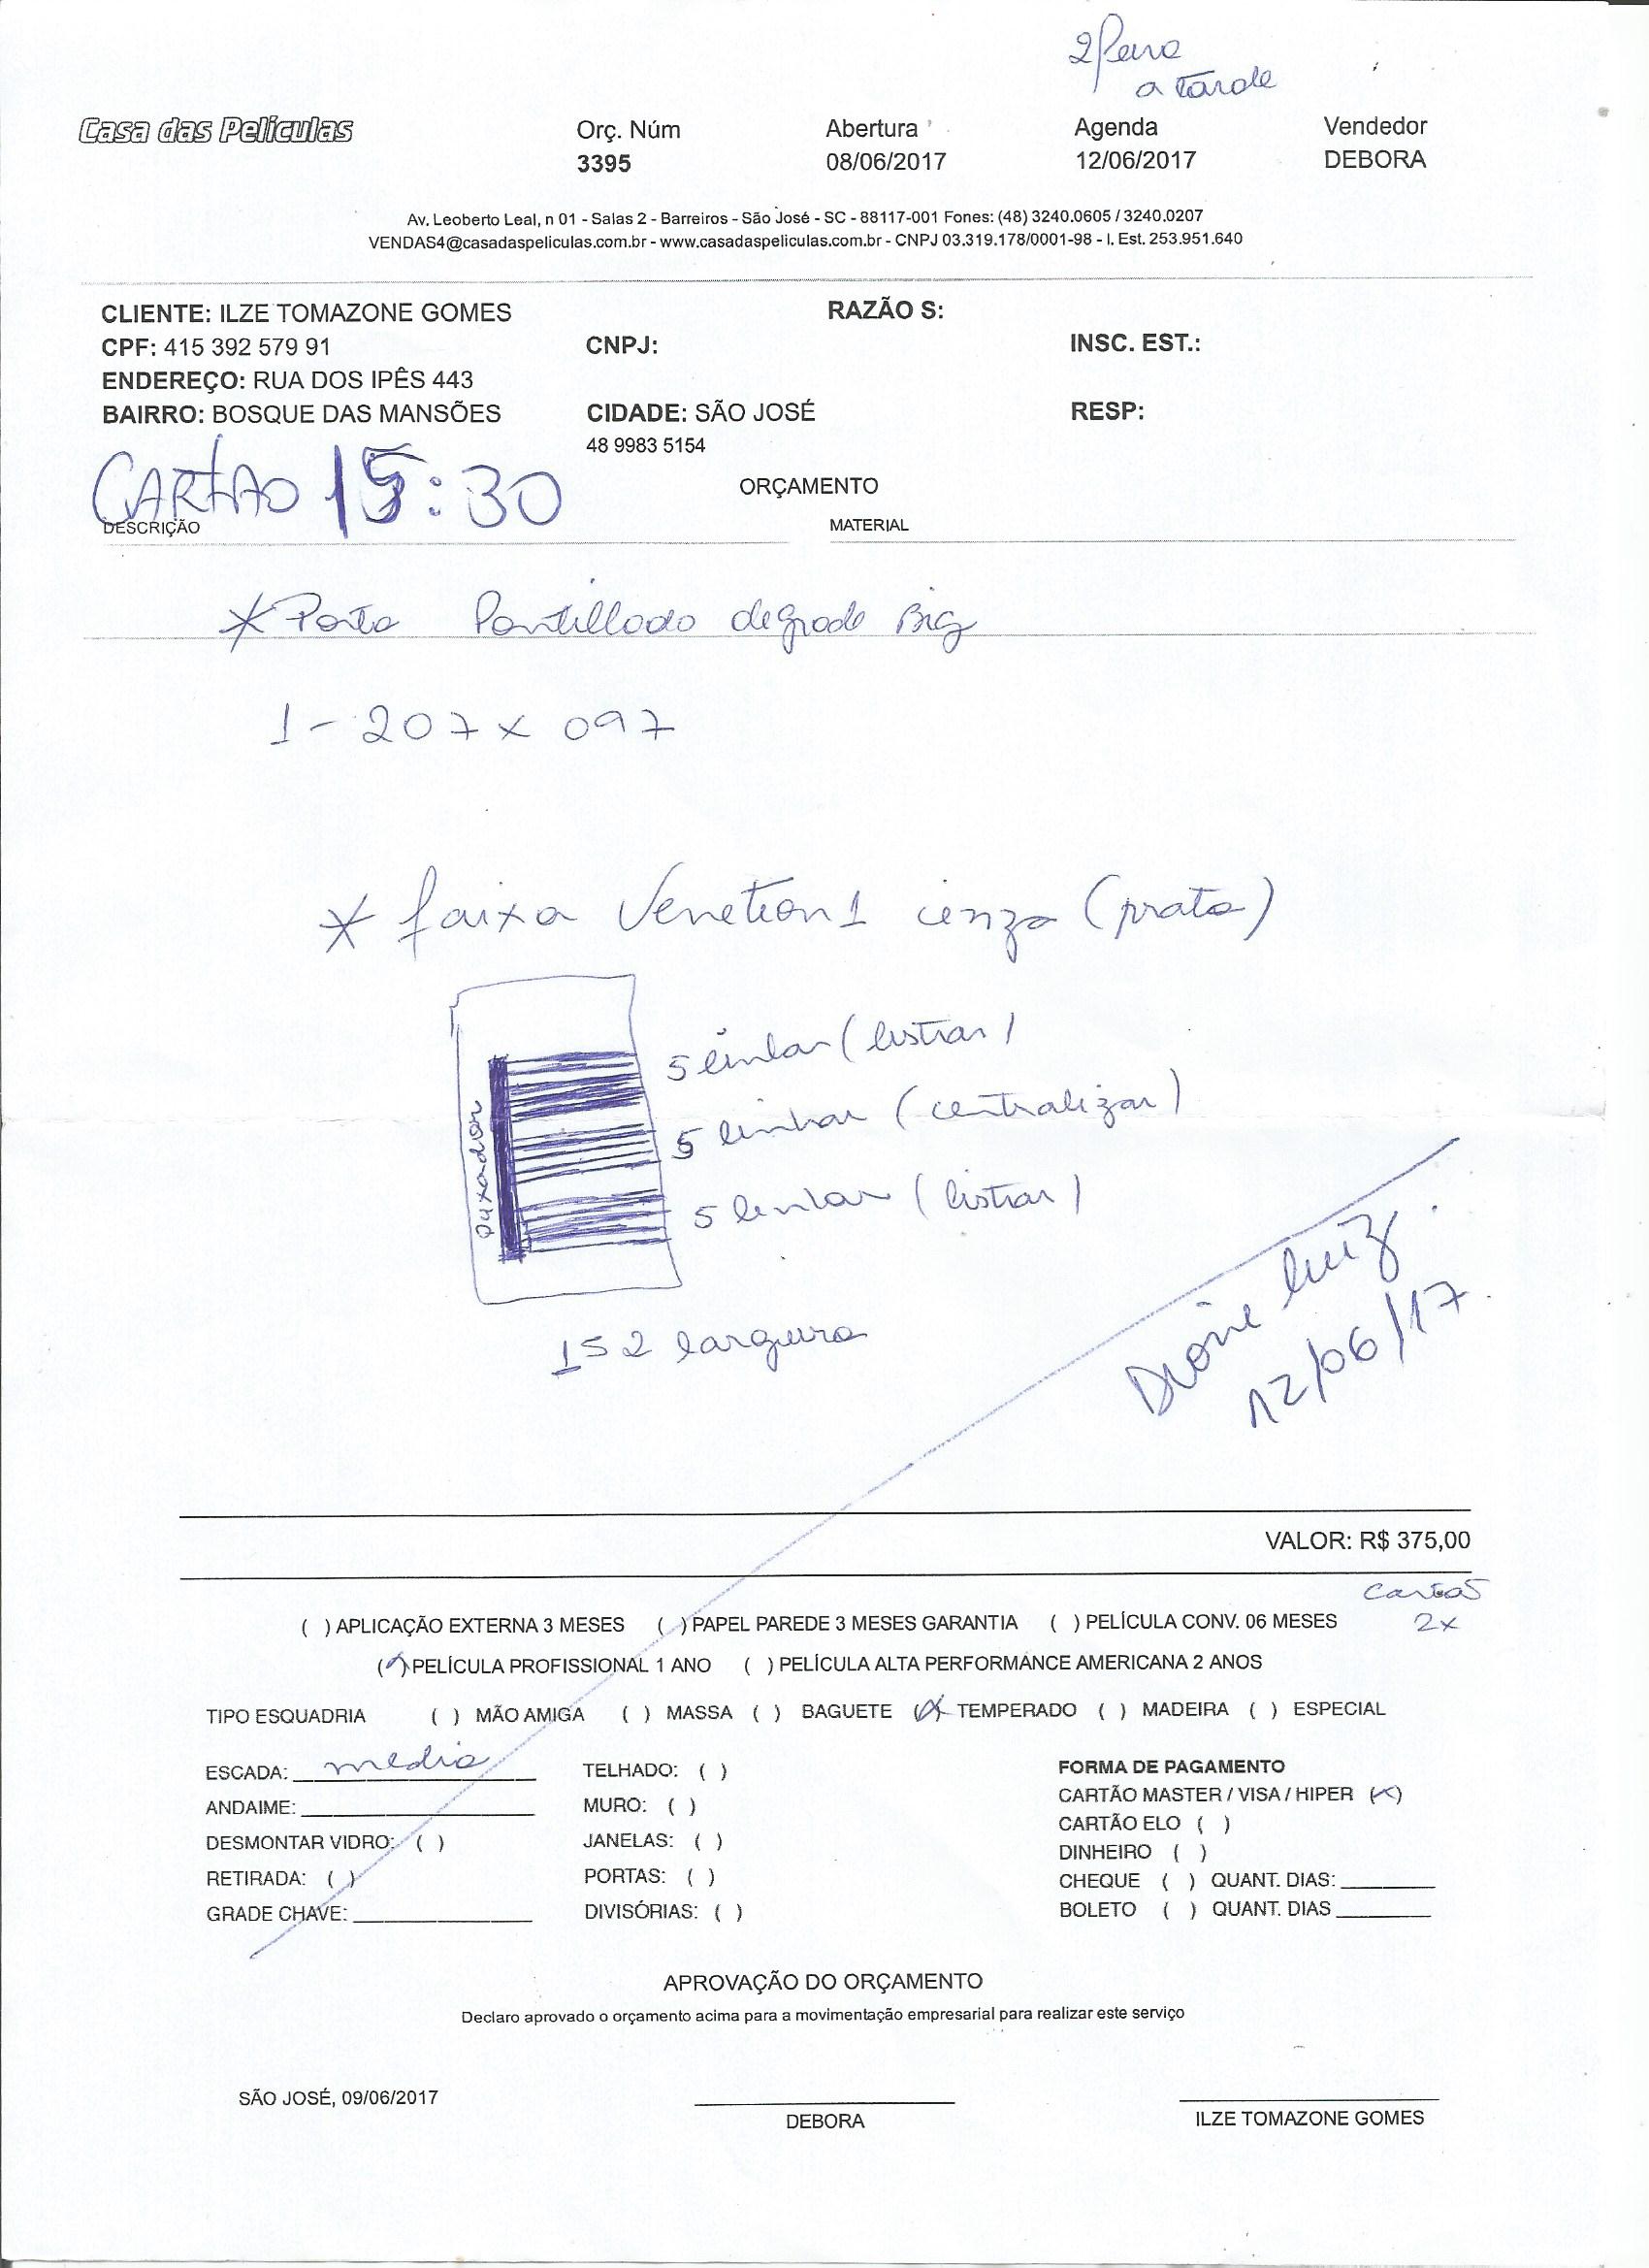 2ª feira
a tarde
Casa das Películas
Orç. Núm Abertura Agenda Vendedor
3395 08/06/2017 12/06/2017 DEBORA
Av. Leoberto Leal, n 01 - Salas 2 - Barreiros - São José - SC - 88117-001 Fones: (48) 3240.0605 / 3240.0207
VENDAS4@casadaspeliculas.com.br - www.casadaspeliculas.com.br - CNPJ 03.319.178/0001-98 - I. Est. 253.951.640
CLIENTE: ILZE TOMAZONE GOMES RAZÃO S:
CPF: 415 392 579 91 CNPJ: INSC. EST.:
ENDEREÇO: RUA DOS IPÊS 443
BAIRRO: BOSQUE DAS MANSÕES CIDADE: SÃO JOSÉ RESP:
48 9983 5154
CARTÃO 15:30
ORÇAMENTO
DESCRIÇÃO MATERIAL
* Porta Pontillado degrade Big
1 - 207 x 097
* faixa Venetion 1 cinza (prata)
5 linhas (listras)
5 linhas (centralizar)
puxador
5 linhas (listras)
152 largura
Dione Luiz
12/06/17
VALOR: R$ 375,00
cartão
2x
( ) APLICAÇÃO EXTERNA 3 MESES ( ) PAPEL PAREDE 3 MESES GARANTIA ( ) PELÍCULA CONV. 06 MESES
( ) PELÍCULA PROFISSIONAL 1 ANO ( ) PELÍCULA ALTA PERFORMANCE AMERICANA 2 ANOS
TIPO ESQUADRIA ( ) MÃO AMIGA ( ) MASSA ( ) BAGUETE (X) TEMPERADO ( ) MADEIRA ( ) ESPECIAL
ESCADA: media TELHADO: ( ) FORMA DE PAGAMENTO
ANDAIME: MURO: ( ) CARTÃO MASTER / VISA / HIPER (X)
DESMONTAR VIDRO: ( ) JANELAS: ( ) CARTÃO ELO ( )
RETIRADA: ( ) PORTAS: ( ) DINHEIRO ( )
GRADE CHAVE: DIVISÓRIAS: ( ) CHEQUE ( ) QUANT. DIAS:
BOLETO ( ) QUANT. DIAS
APROVAÇÃO DO ORÇAMENTO
Declaro aprovado o orçamento acima para a movimentação empresarial para realizar este serviço
SÃO JOSÉ, 09/06/2017
DEBORA ILZE TOMAZONE GOMES